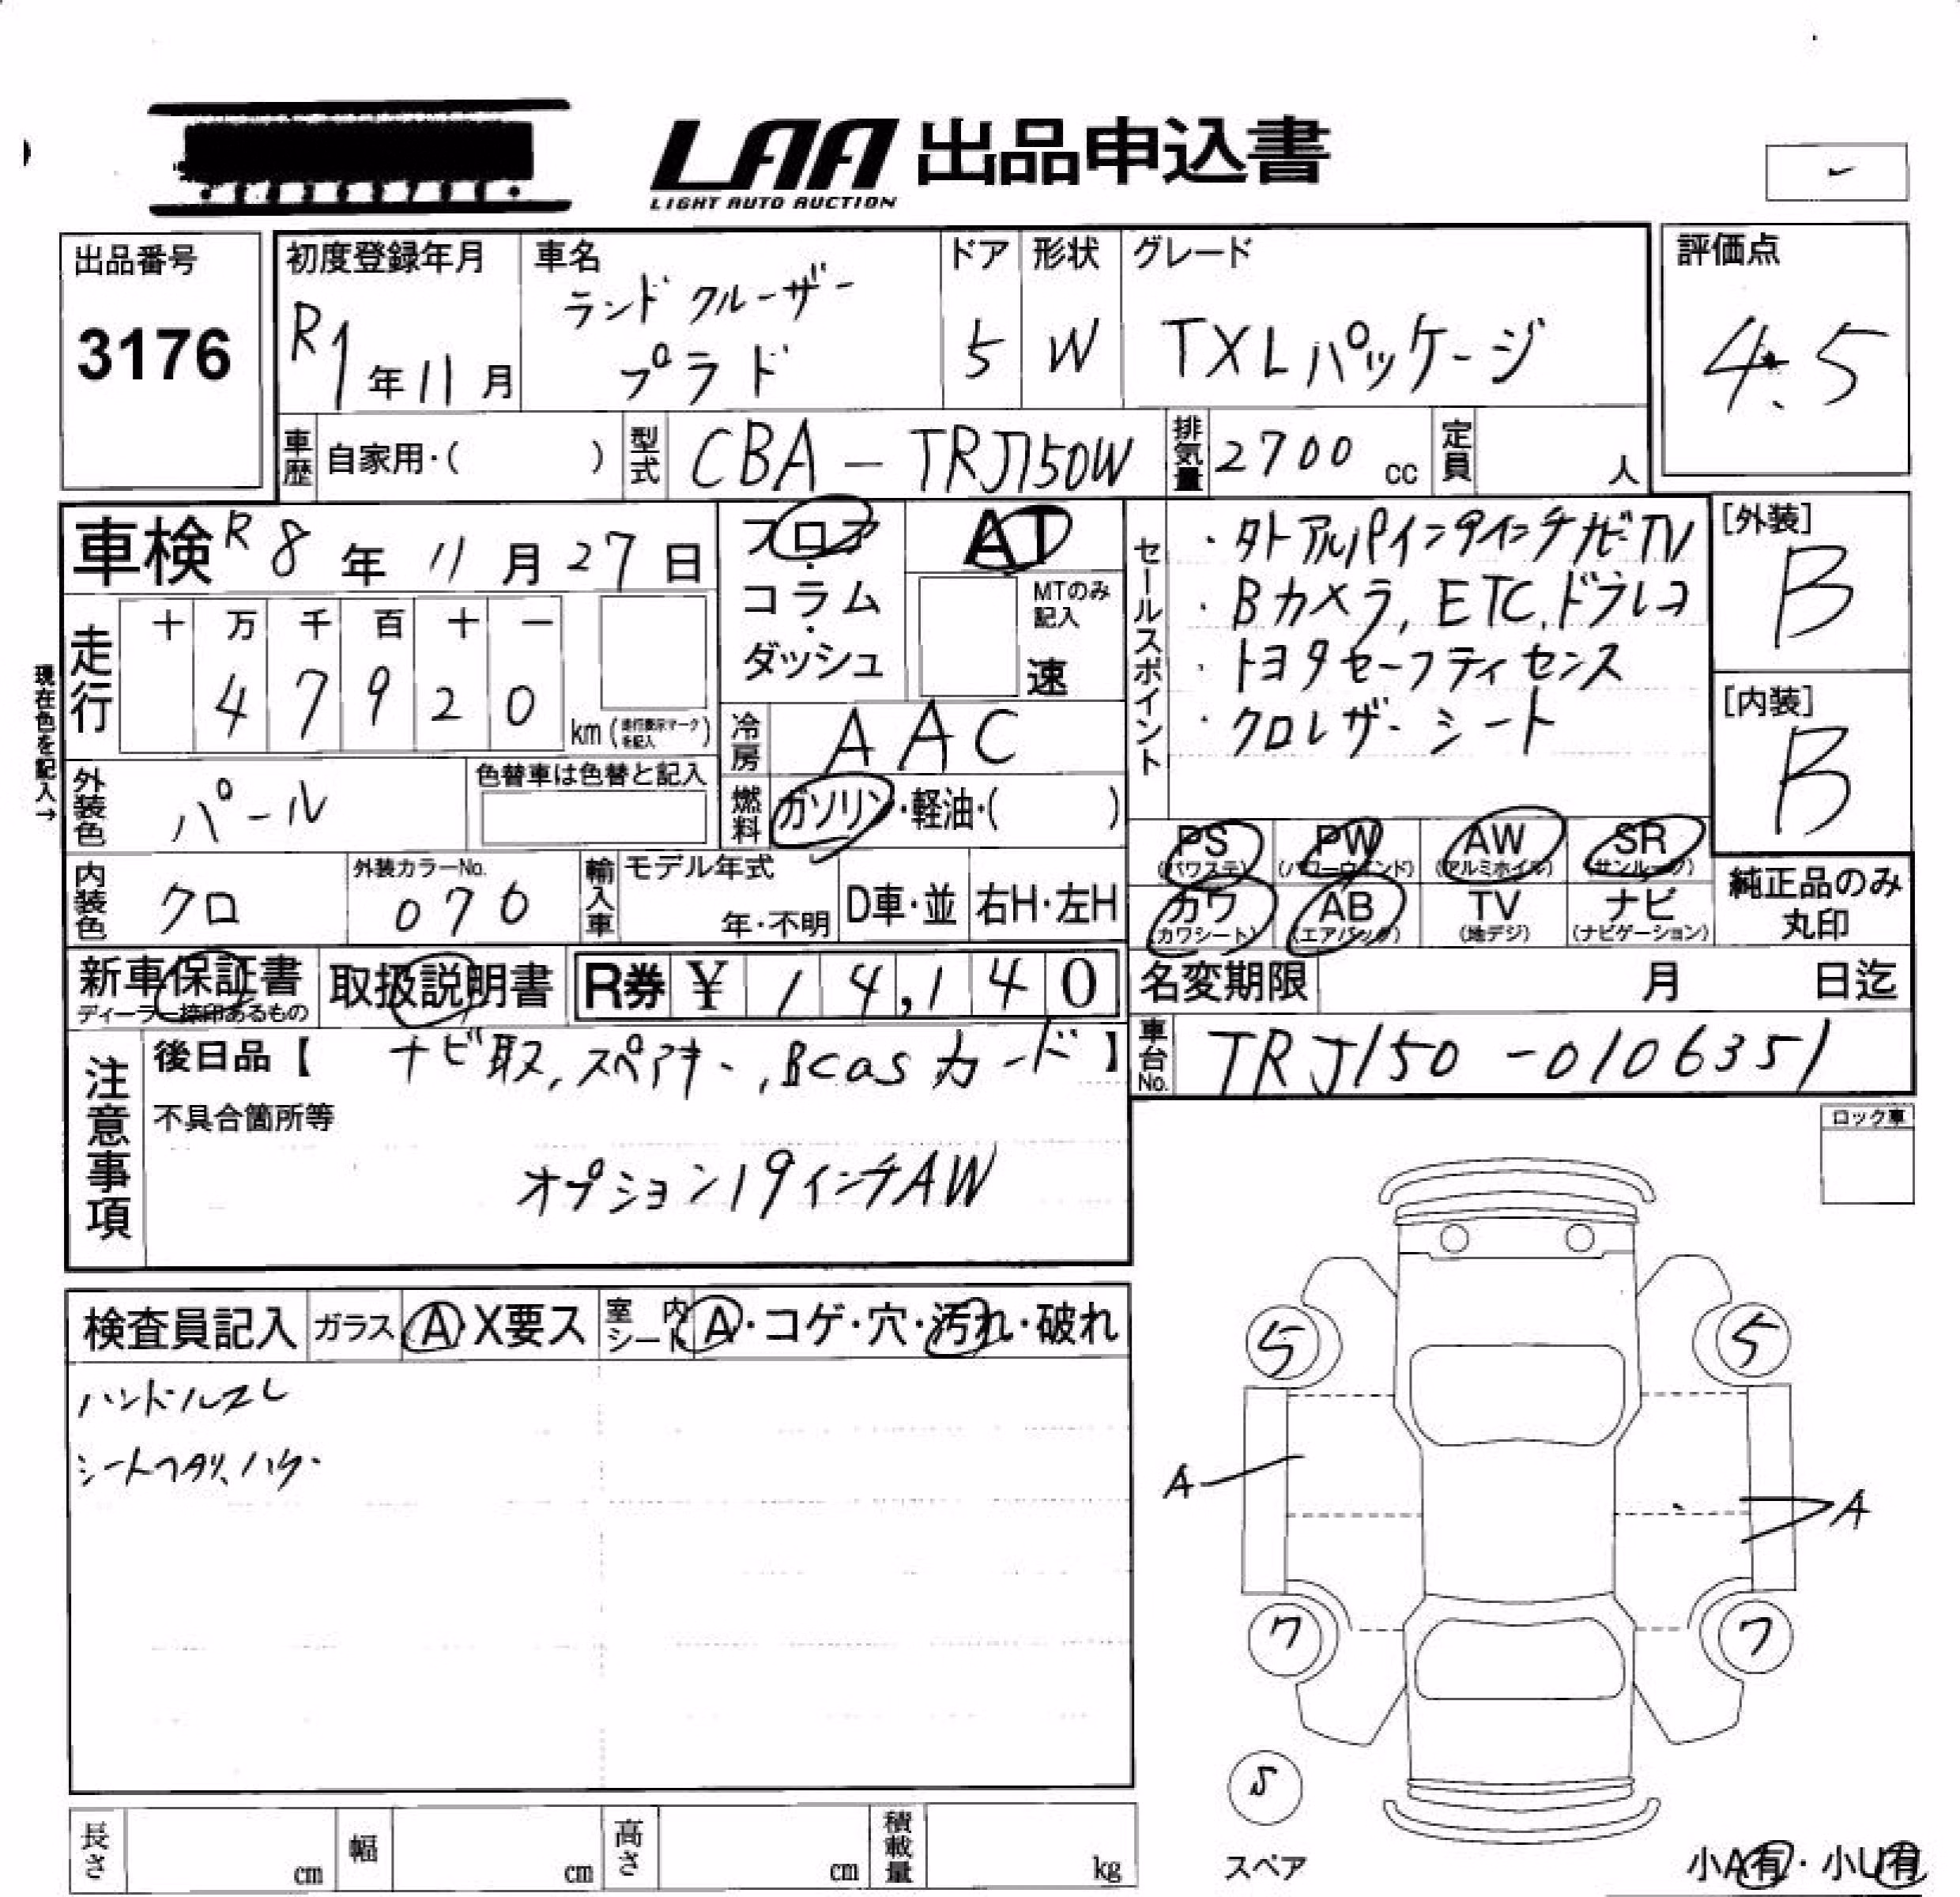 LAA 出品申込書
LIGHT AUTO AUCTION
出品番号
3176
初度登録年月
R1年11月
車名
ランドクルーザー
プラド
ドア
5
形状
W
グレード
TXLパッケージ
評価点
4.5
車歴
自家用・( )
型式
CBA-TRJ150W
排気量
2700cc
定員
人
車検 R8年11月27日
フロア
コラム
ダッシュ
AT
MTのみ記入
速
セールスポイント
・外アルパイン9インチナビTV
・Bカメラ, ETC, ドラレコ
・トヨタセーフティセンス
・クロレザーシート
[外装]
B
[内装]
B
現在色を記入→
走行
十 万 千 百 十 一
4 7 9 2 0
km (走行表示マークを記入)
冷房
AAC
外装色
パール
色替車は色替と記入
燃料
ガソリン・軽油・( )
PS (パワステ)
PW (パワーウインド)
AW (アルミホイル)
SR (サンルーフ)
カワ (カワシート)
AB (エアバック)
TV (地デジ)
ナビ (ナビゲーション)
純正品のみ
丸印
内装色
クロ
外装カラーNo.
070
輸入車
モデル年式
年・不明
D車・並
右H・左H
新車保証書
ディーラー捺印あるもの
取扱説明書
R券 ¥ 14,140
名変期限 月 日迄
注意事項
後日品【ナビ取, スペアキー, Bcasカード】
車台No.
TRJ150-0106351
不具合箇所等
オプション19インチAW
ロック車
検査員記入
ガラス
A X要ス
室内シート
A・コゲ・穴・汚れ・破れ
ハンドルスレ
シートヘタリ、ハゲ・
5
5
A
A
7
7
5
スペア
長さ cm
幅 cm
高さ cm
積載量 kg
小A有・小U有